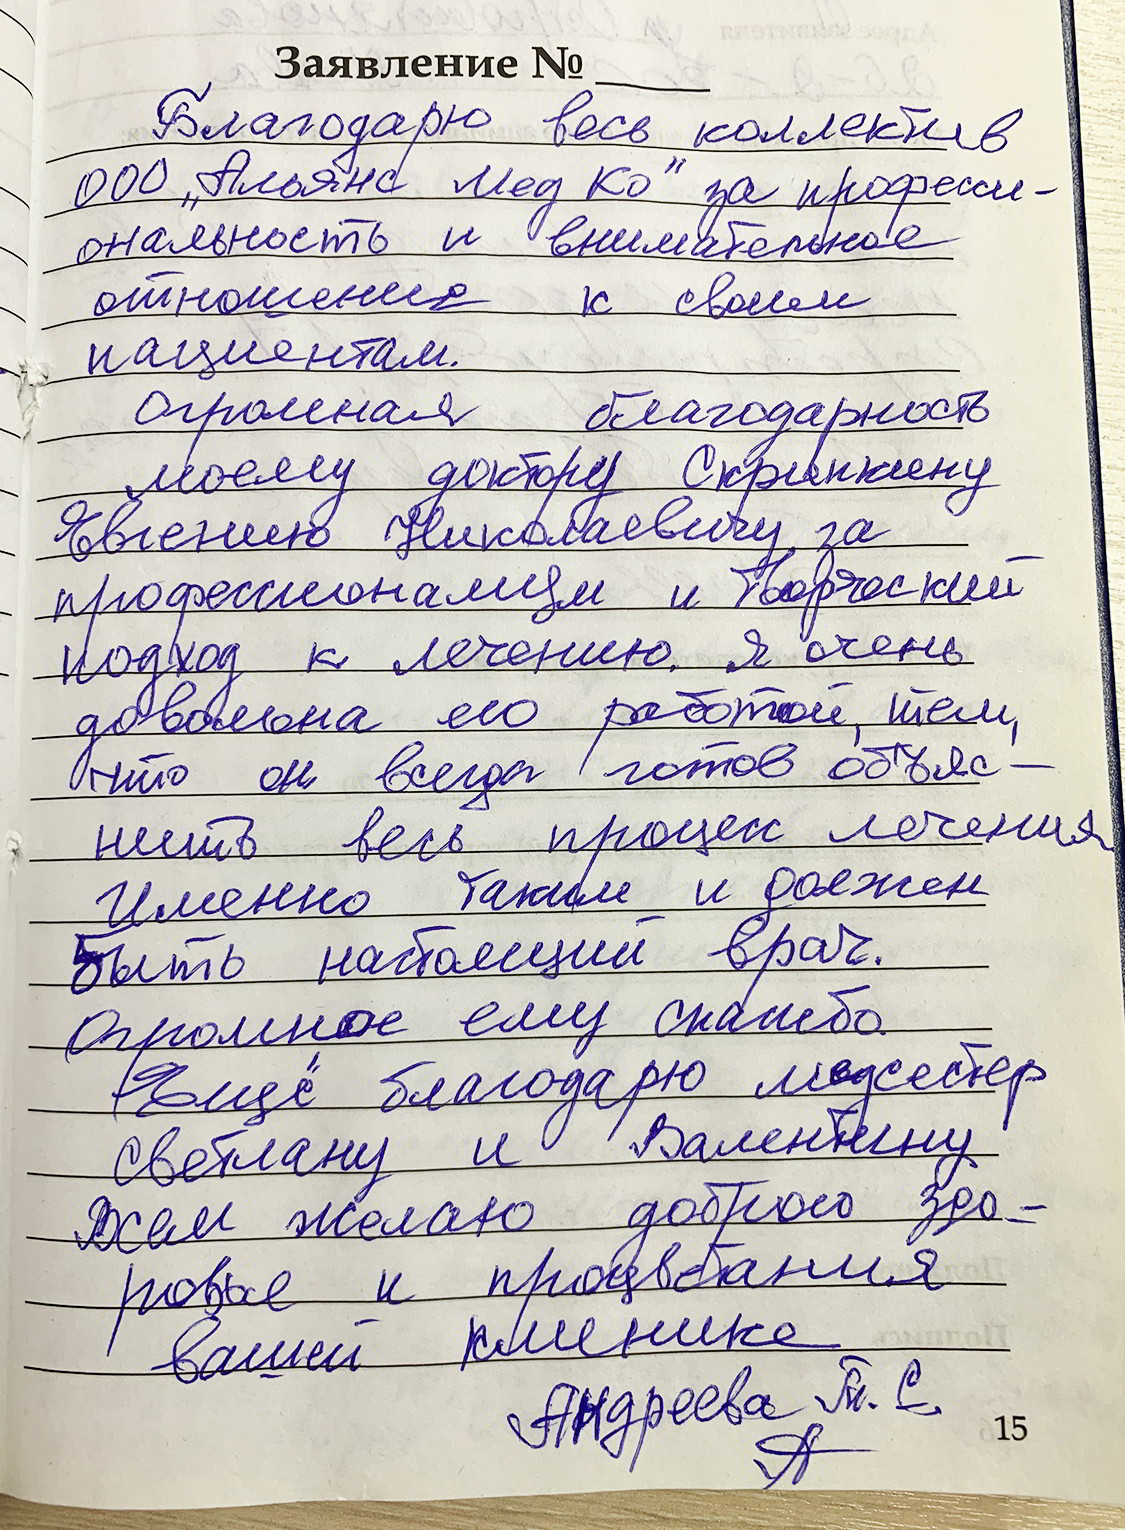 Заявление № ____
Благодарю весь коллектив
ООО „Альянс Мед Ко" за професси-
ональность и внимательное
отношение к своим
пациентам.
Огромная благодарность
моему доктору Скрипкину
Евгению Николаевичу за
профессионализм и творческий
подход к лечению. Я очень
довольна его работой, тем,
что он всегда готов объяс-
нить весь процесс лечения
Именно таким и должен
быть настоящий врач.
Огромное ему спасибо
Ещё благодарю медсестер
Светлану и Валентину
Всем желаю доброго здо-
ровье и процветания
вашей клинике
Андреева Т. С.
15